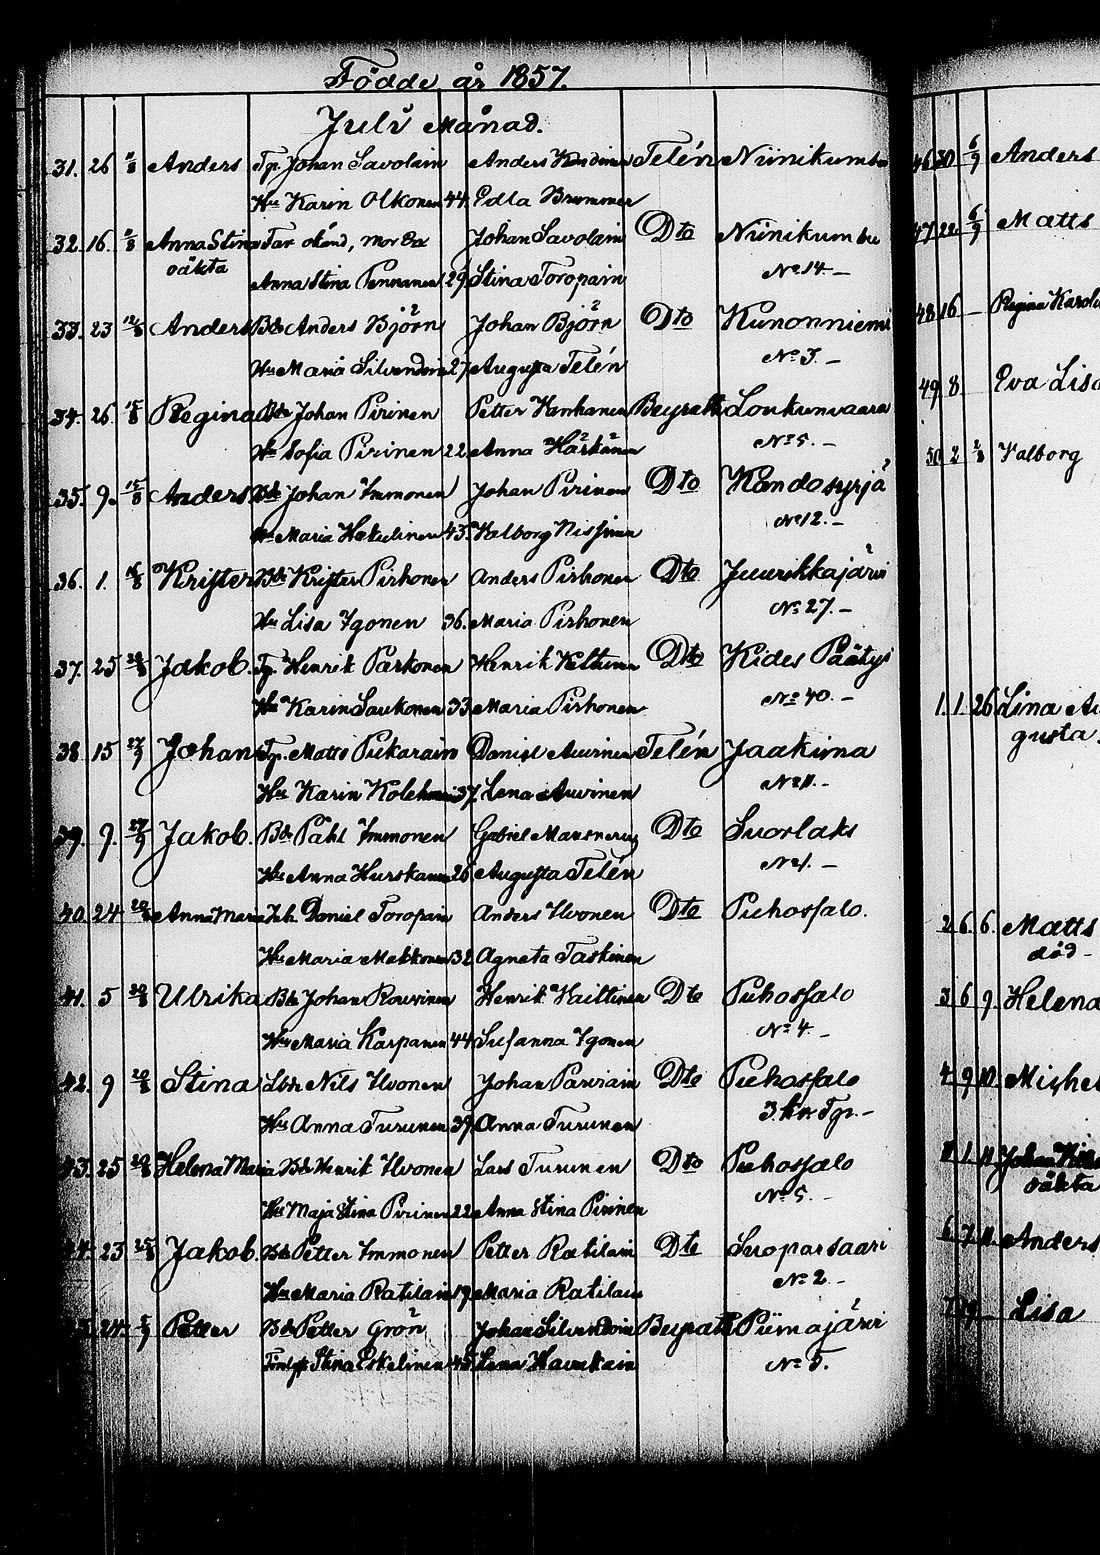 Födde år 1857.
Juli Månad.
31. 26 Anders Tp. Johan Savolain Anders Telén Niinikumbu
Hu Karin Olkonen 44. Edla Brummer
32. 16. Anna Stina Far okänd, mor Johan Savolain Dto Niinikumbu
oäkta Anna Stina Pennanen 29 Stina Toropain No 14.-
33. 23 12/8 Anders Bde Anders Björn Johan Björn Dto Kunonniemi
Hu Maria Silvendoin 27 Augusta Telén No 3.-
34. 26 15/8 Regina Bde Johan Pirinen Petter Hanhanen Loukunvaara
Hu Sofia Pirinen 22 Anna Härkänen No 5.-
35. 9. 15/8 Anders Bde Johan Immonen Johan Pirinen Dto Kandosyrjä
Hu Maria Hakulinen 43. Valborg Nissinen No 12.-
36. 1. 16/8 Krister Bde Krister Pirhonen Anders Pirhonen Dto Juurikkajärvi
Hu Lisa Igonen 36. Maria Pirhonen No 27.-
37. 25 Jakob. Tp. Henrik Parkonen Henrik Dto Kides Päätys
Hu Karin Saukonen 33 Maria Pirhonen No 40.-
38 15 27/9 Johan Tp. Matts Pukarain Daniel Auvinen Telén Jaakima
Hu Karin 37. Lena Auvinen No 11.-
39. 9. 27/9 Jakob. Bde Påhl Immonen Gabriel Dto Suorlaks
Hu Anna Hurskainen 26 Augusta Telén No 1.-
40. 24 Anna Maria Daniel Toropain Anders Ilvonen Dto Puhossalo.
Hu Maria Makkonen 32 Agneta Taskinen
41. 5 Ulrika Bde Johan Rouvinen Henrik Dto Puhossalo
Hu Maria Karpanen 44 Susanna Igonen No 4.-
42. 9 Stina Nils Ilvonen Johan Parviain Dto Puhossalo
Hu Anna Turunen 39. Anna Turunen Tp.-
43. 25 Helena Maria Bde Henrik Ilvonen Lars Turunen Dto Puhossalo
Hu Maja Stina Pirinen 22 Anna Stina Pirinen No 5.-
44. 23 25/8 Jakob. Bde Petter Immonen Petter Ratilain Dto Suoparsaari
Hu Maria Ratilain 19 Maria Ratilain No 2.-
24. Petter Bde Petter Grön Johan Silvendoin Piimäjärvi
Stina Eskelinen 45 Lena Havukain No 5.
46 30 6/9 Anders
47 22. 6/9 Matts
48 16 - Regina
49 8 Eva Lisa
50 2 Valborg
1. 1. 26 Lina Au
gusta.
2 6. 6. Matts
död-
3 6 9. Helena
4 9 10. Mishel
1. 11
oäkta
6 7 11. Anders
Lisa